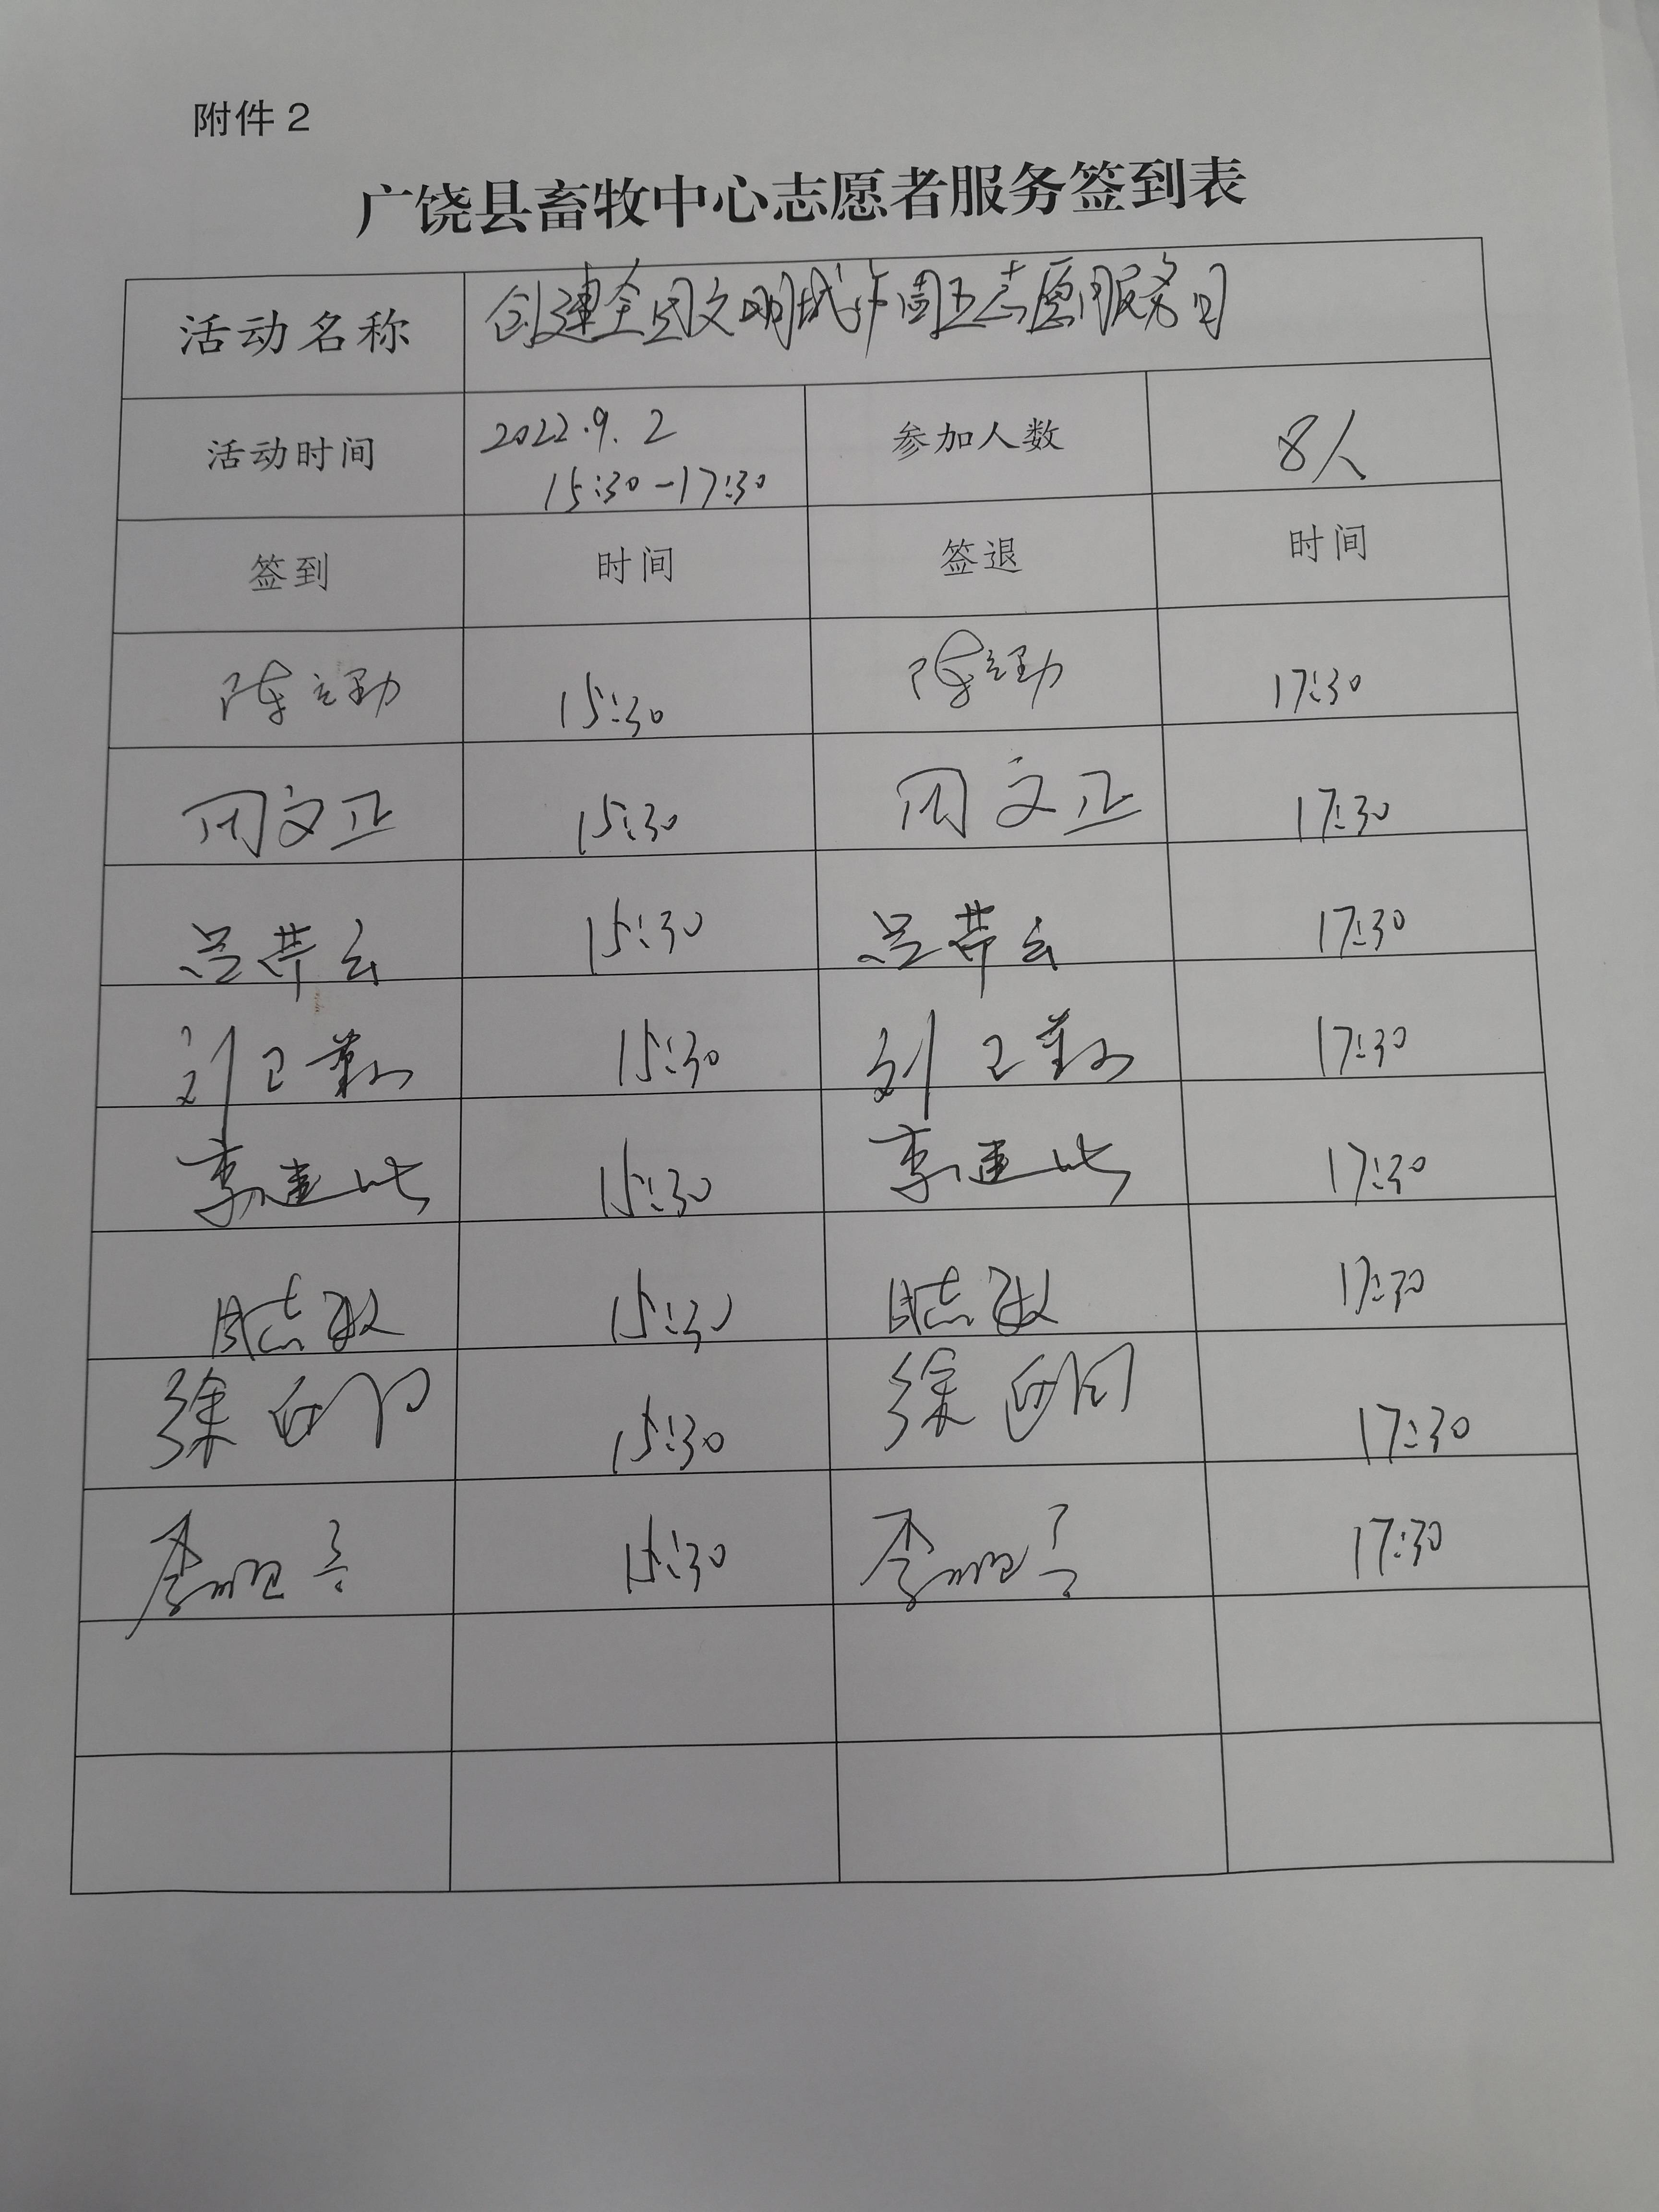 附件2
广饶县畜牧中心志愿者服务签到表
活动名称 创建全国文明城市周五志愿服务日
活动时间 2022.9.2 参加人数 8人
15:30-17:30
签到 时间 签退 时间
陈立勤 15:30 陈立勤 17:30
周文正 15:30 周文正 17:30
吕 15:30 吕 17:30
刘卫 15:30 刘卫 17:30
李建 15:30 李建 17:30
周志敏 15:30 周志敏 17:30
徐 15:30 徐 17:30
李 15:30 李 17:30